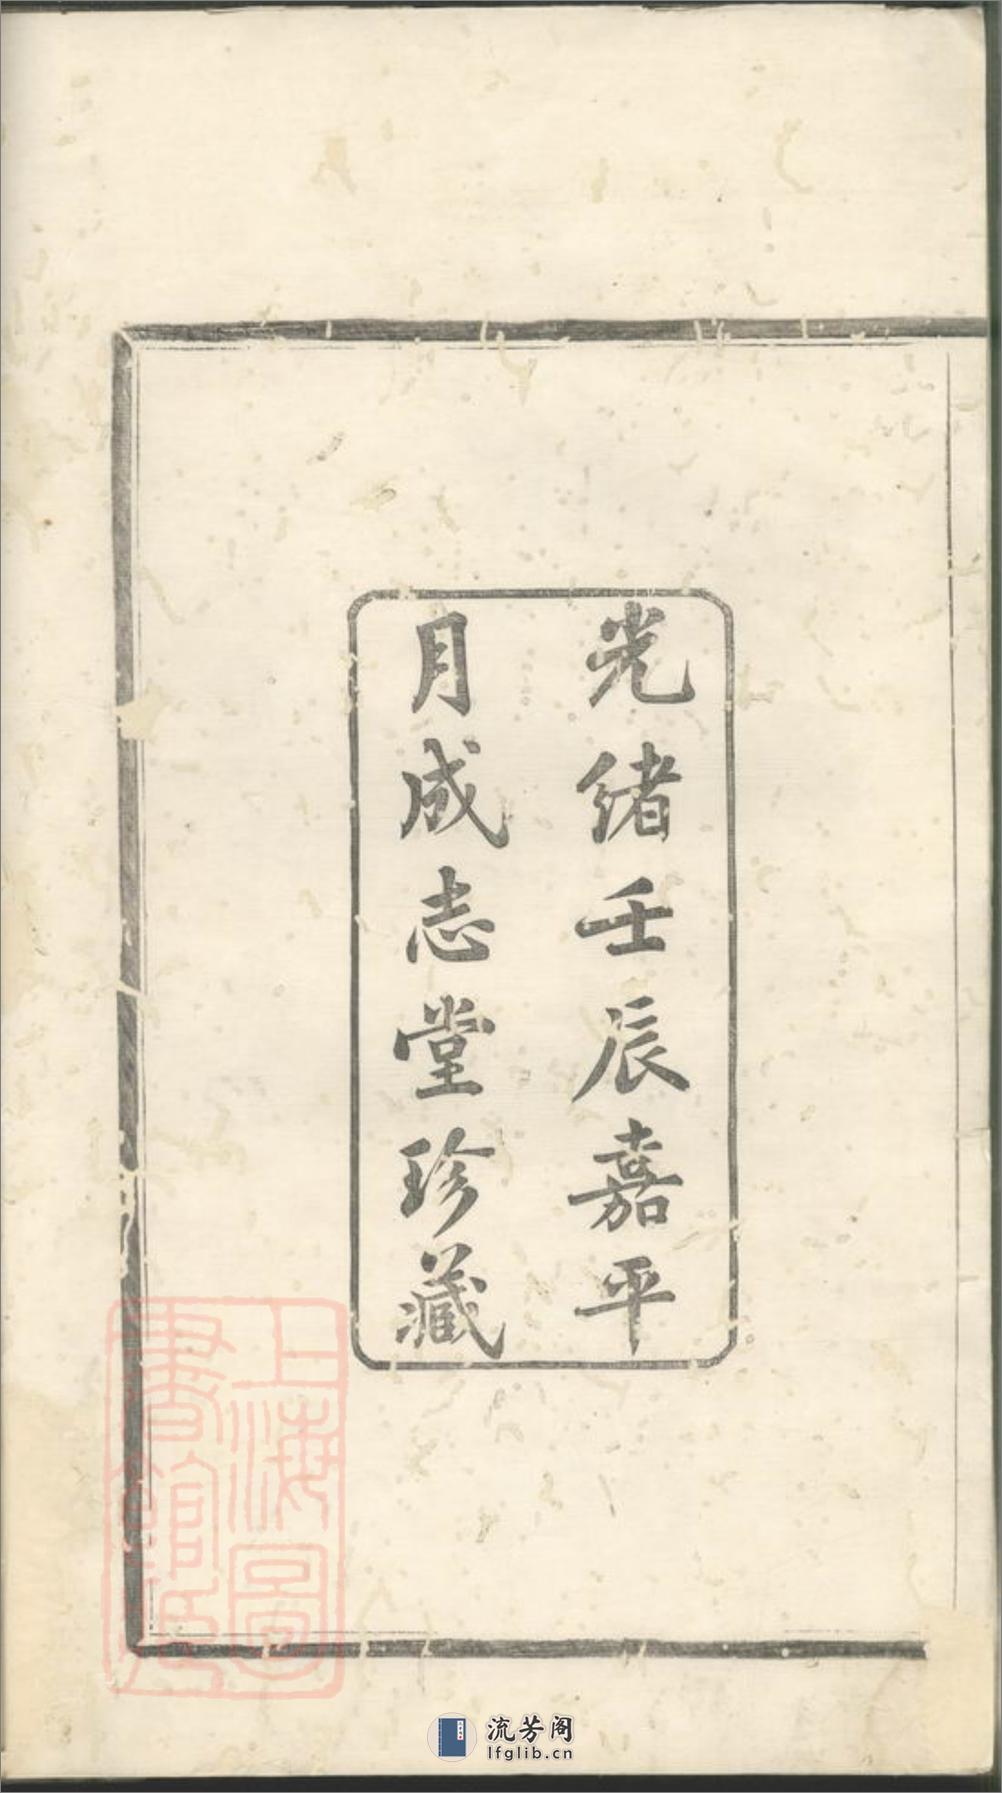 光緒壬辰嘉平
月成志堂珍藏
上海圖
書館藏
流芳阁
lfglib.cn